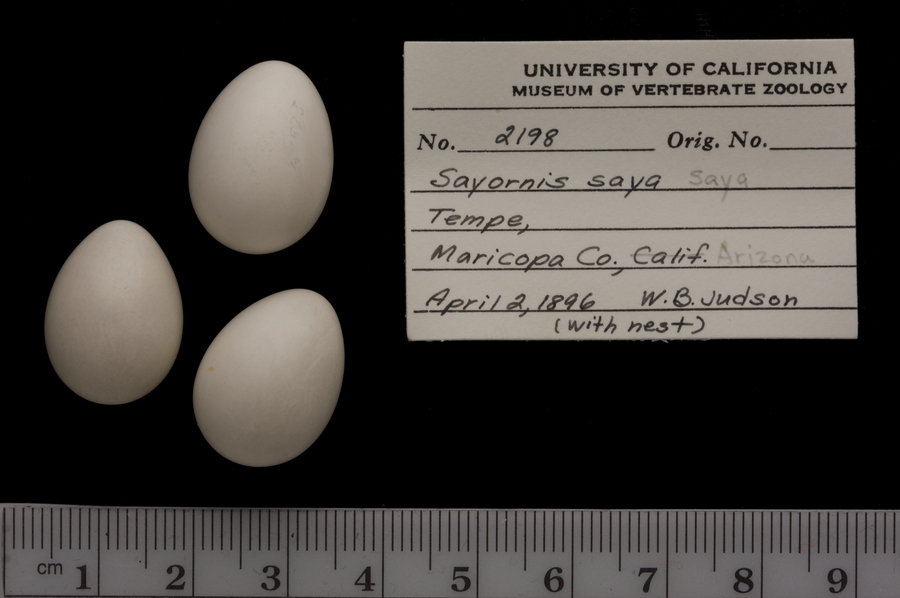 UNIVERSITY OF CALIFORNIA
MUSEUM OF VERTEBRATE ZOOLOGY
No. 2198 Orig. No.
Sayornis saya saya
Tempe,
Maricopa Co., Calif. Arizona
April 2, 1896 W. B. Judson
(with nest)
cm 1 2 3 4 5 6 7 8 9